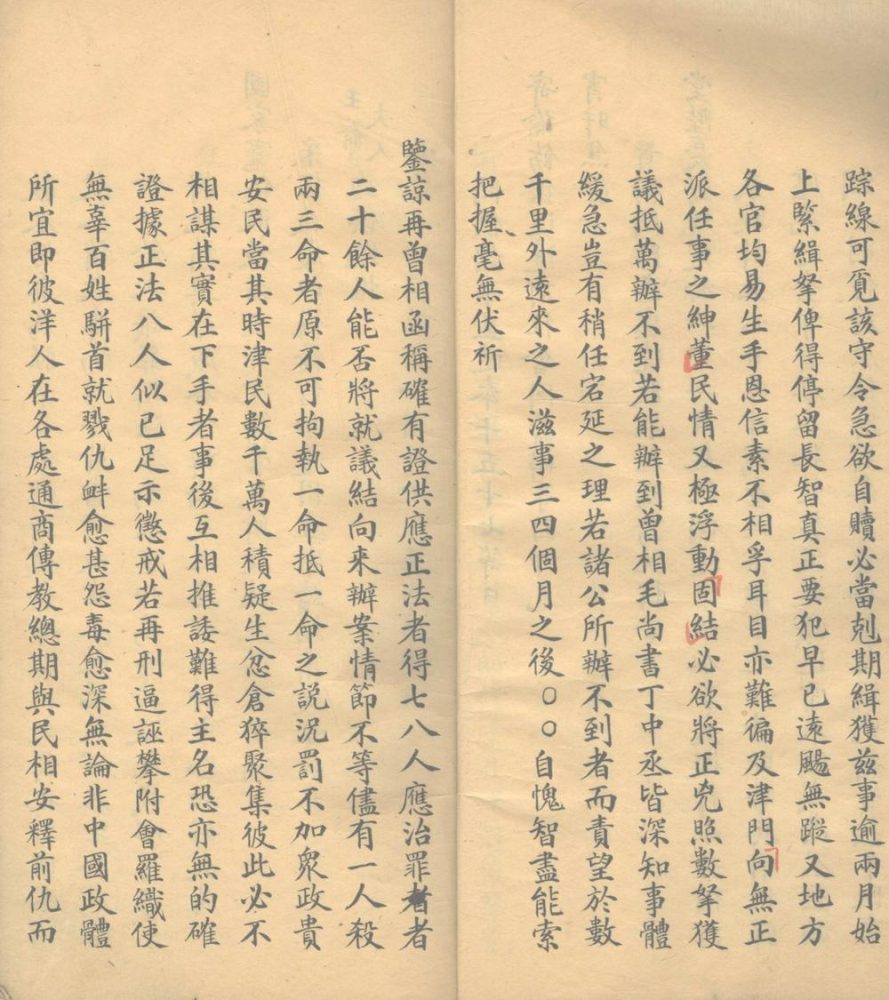 踪線可覓該守令急欲自贖必當剋期緝獲茲事逾兩月始
上緊緝拏俾得停留長智真正要犯早已遠颺無蹤又地方
各官均易生手恩信素不相孚耳目亦難徧及津門向無正
派任事之紳董民情又極浮動固結必欲將正兇照數拏獲
議抵萬辦不到若能辦到曾相毛尚書丁中丞皆深知事體
緩急豈有稍任宕延之理若諸公所辦不到者而責望於數
千里外遠來之人滋事三四個月之後○○自愧智盡能索
把握毫無伏祈
鑒諒再曾相函稱確有證供應正法者得七八人應治罪者者
二十餘人能否將就議結向來辦案情節不等儘有一人殺
兩三命者原不可拘執一命抵一命之說況罰不加眾政貴
安民當其時津民數千萬人積疑生忿倉猝聚集彼此必不
相謀其實在下手者事後互相推諉難得主名恐亦無的確
證據正法八人似已足示懲戒若再刑逼誣攀附會羅織使
無辜百姓駢首就戮仇衅愈甚怨毒愈深無論非中國政體
所宜即彼洋人在各處通商傳教總期與民相安釋前仇而